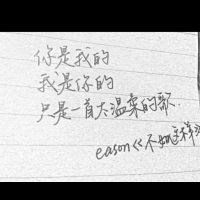 你是我的
我是你的
只是一首太温柔的歌.
eason《不如这样